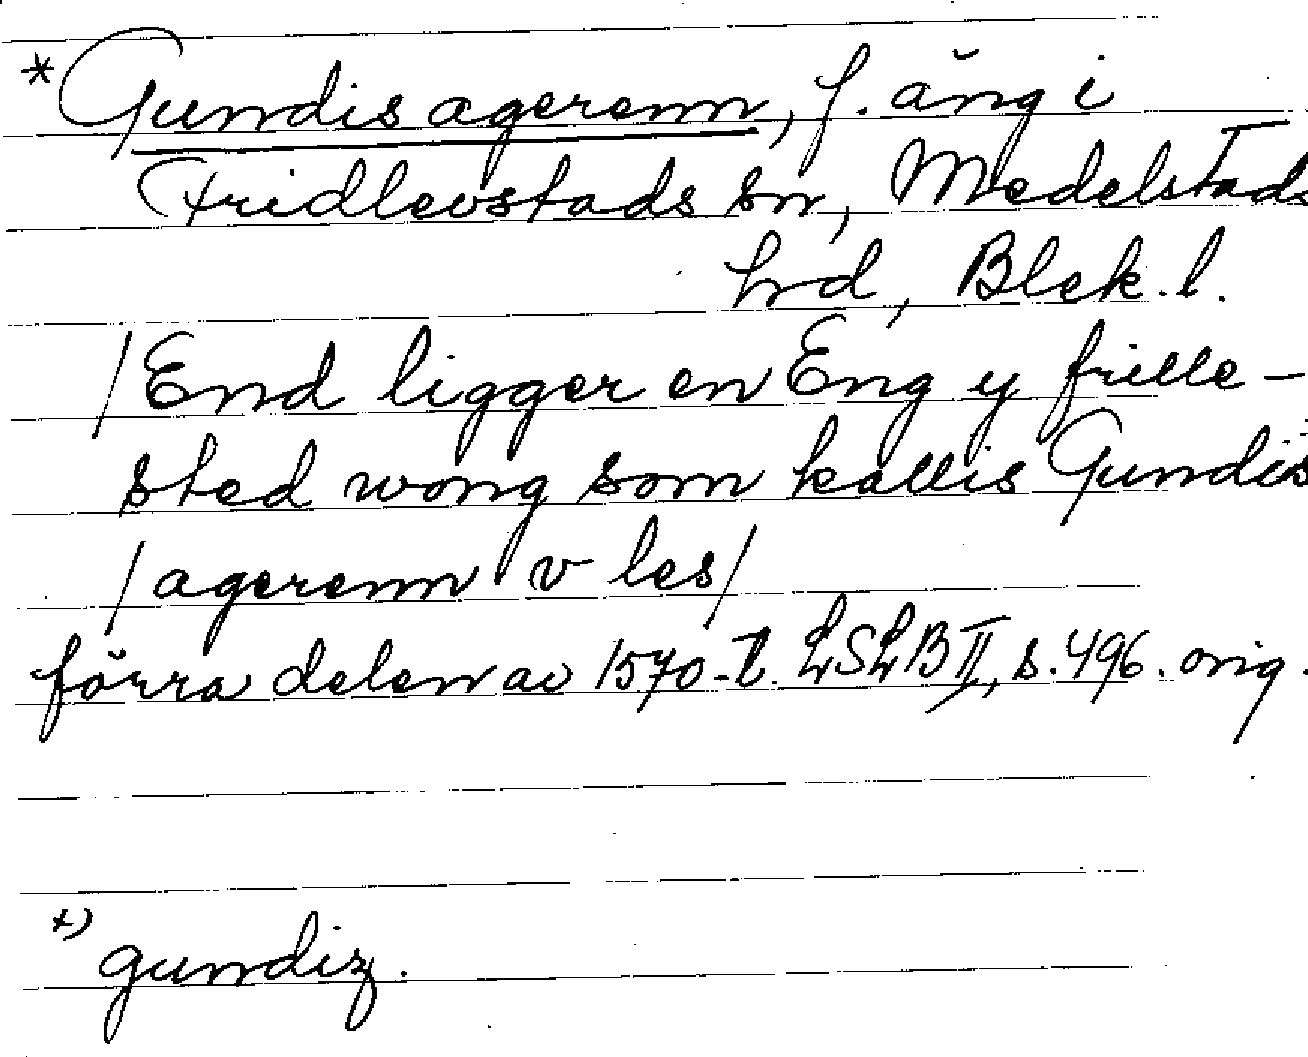 *Gundis agerenn, f. äng i
Fridlevstads sn, Medelstads
hrd, Blek. l.
/End ligger en Eng y frille-
sted wong som kallis Gundis
/agerenn v les/
förra delen av 1570-t. LSLB II, s. 496. orig.
+) gundiz.